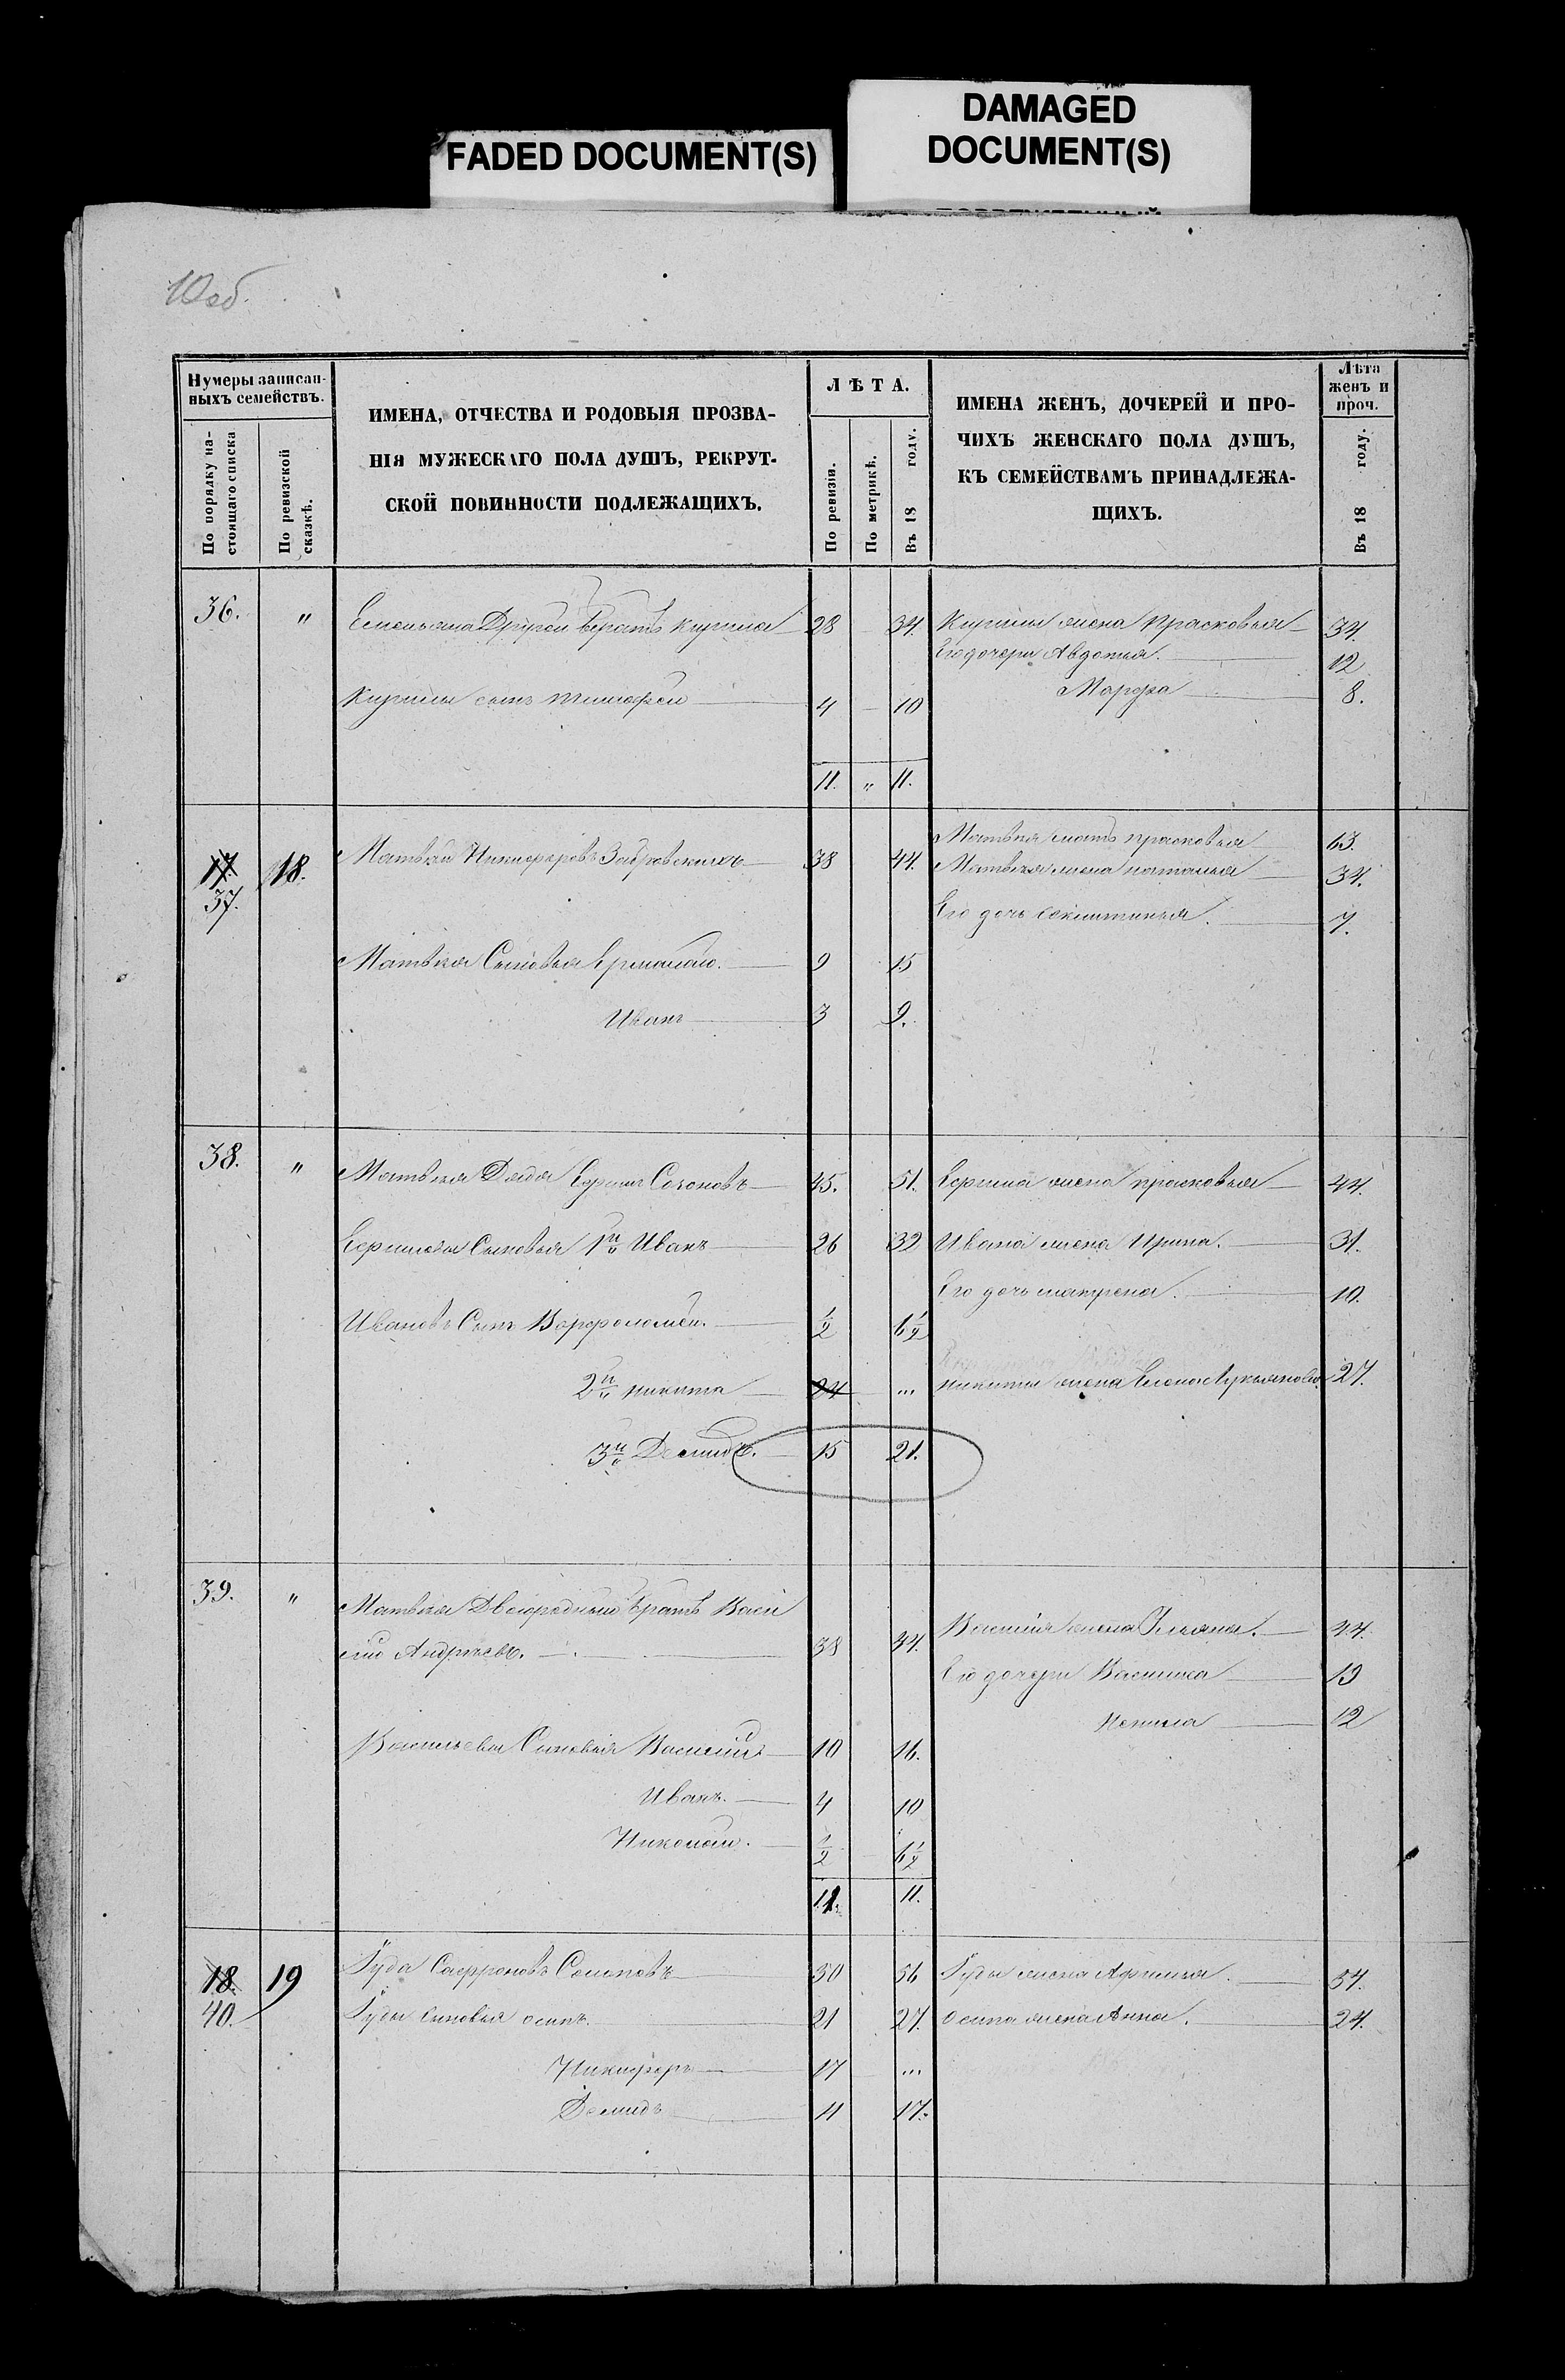 FADED DOCUMENT(S)
DAMAGED
DOCUMENT(S)
10 об.
Нумеры записан-
ныхъ семействъ.
По порядку на-
стоящаго списка
По ревизской
сказкѣ.
ИМЕНА, ОТЧЕСТВА И РОДОВЫЯ ПРОЗВА-
НІЯ МУЖЕСКАГО ПОЛА ДУШЪ, РЕКРУТ-
СКОЙ ПОВИННОСТИ ПОДЛЕЖАЩИХЪ.
ЛѢТА.
По ревизіи.
По метрикѣ.
Въ 18 году.
ИМЕНА ЖЕНЪ, ДОЧЕРЕЙ И ПРО-
ЧИХЪ ЖЕНСКАГО ПОЛА ДУШЪ,
КЪ СЕМЕЙСТВАМЪ ПРИНАДЛЕЖА-
ЩИХЪ.
Лѣта
женъ и
проч.
Въ 18 году.
36. " Емельяна Другой братъ Курила 28 34. Курилы жена Прасковья 34.
Его дочери Авдотья. 12
Марфа 8.
Курилы сынъ Тимофей 4 10
11. " 11.
17. 18. Матвѣй Никифоровъ 38 44. Матвѣя мать прасковья 63.
37. Матвѣя жена наталья 34.
Его дочь 7.
Матвѣя Сыновья Ермолай. 9 15
Иванъ 3 9.
38. " Матвѣя Дядя Ефимъ Созоновъ 45. 51. Ефима жена прасковья 44.
Ефимовы Сыновья 1й Иванъ 26 32 Ивана жена Ирина. 31.
Его дочь матрена. 10.
Ивановъ Сынъ Варфоломѣй. ½ 6½
2й никита 24 ... никиты жена Елена Лукьянова. 27.
3й Демидъ. 15 21.
39. " Матвѣя Двоюродный братъ Васи
лій Андреевъ. 38 44. Василія жена Ульяна. 44.
Его дочери Василиса 19
Ненила 12
Васильевы Сыновья Василій. 10 16.
Иванъ. 4 10
Николай. ½ 6½
11. 11.
18. 19 Іуда Сафроновъ 50 56 Іуды жена Афимья. 57.
40. Іуды сыновья осипъ. 21 27. осипа жена Анна. 24.
Никифоръ 17 ...
Демидъ 11 17.